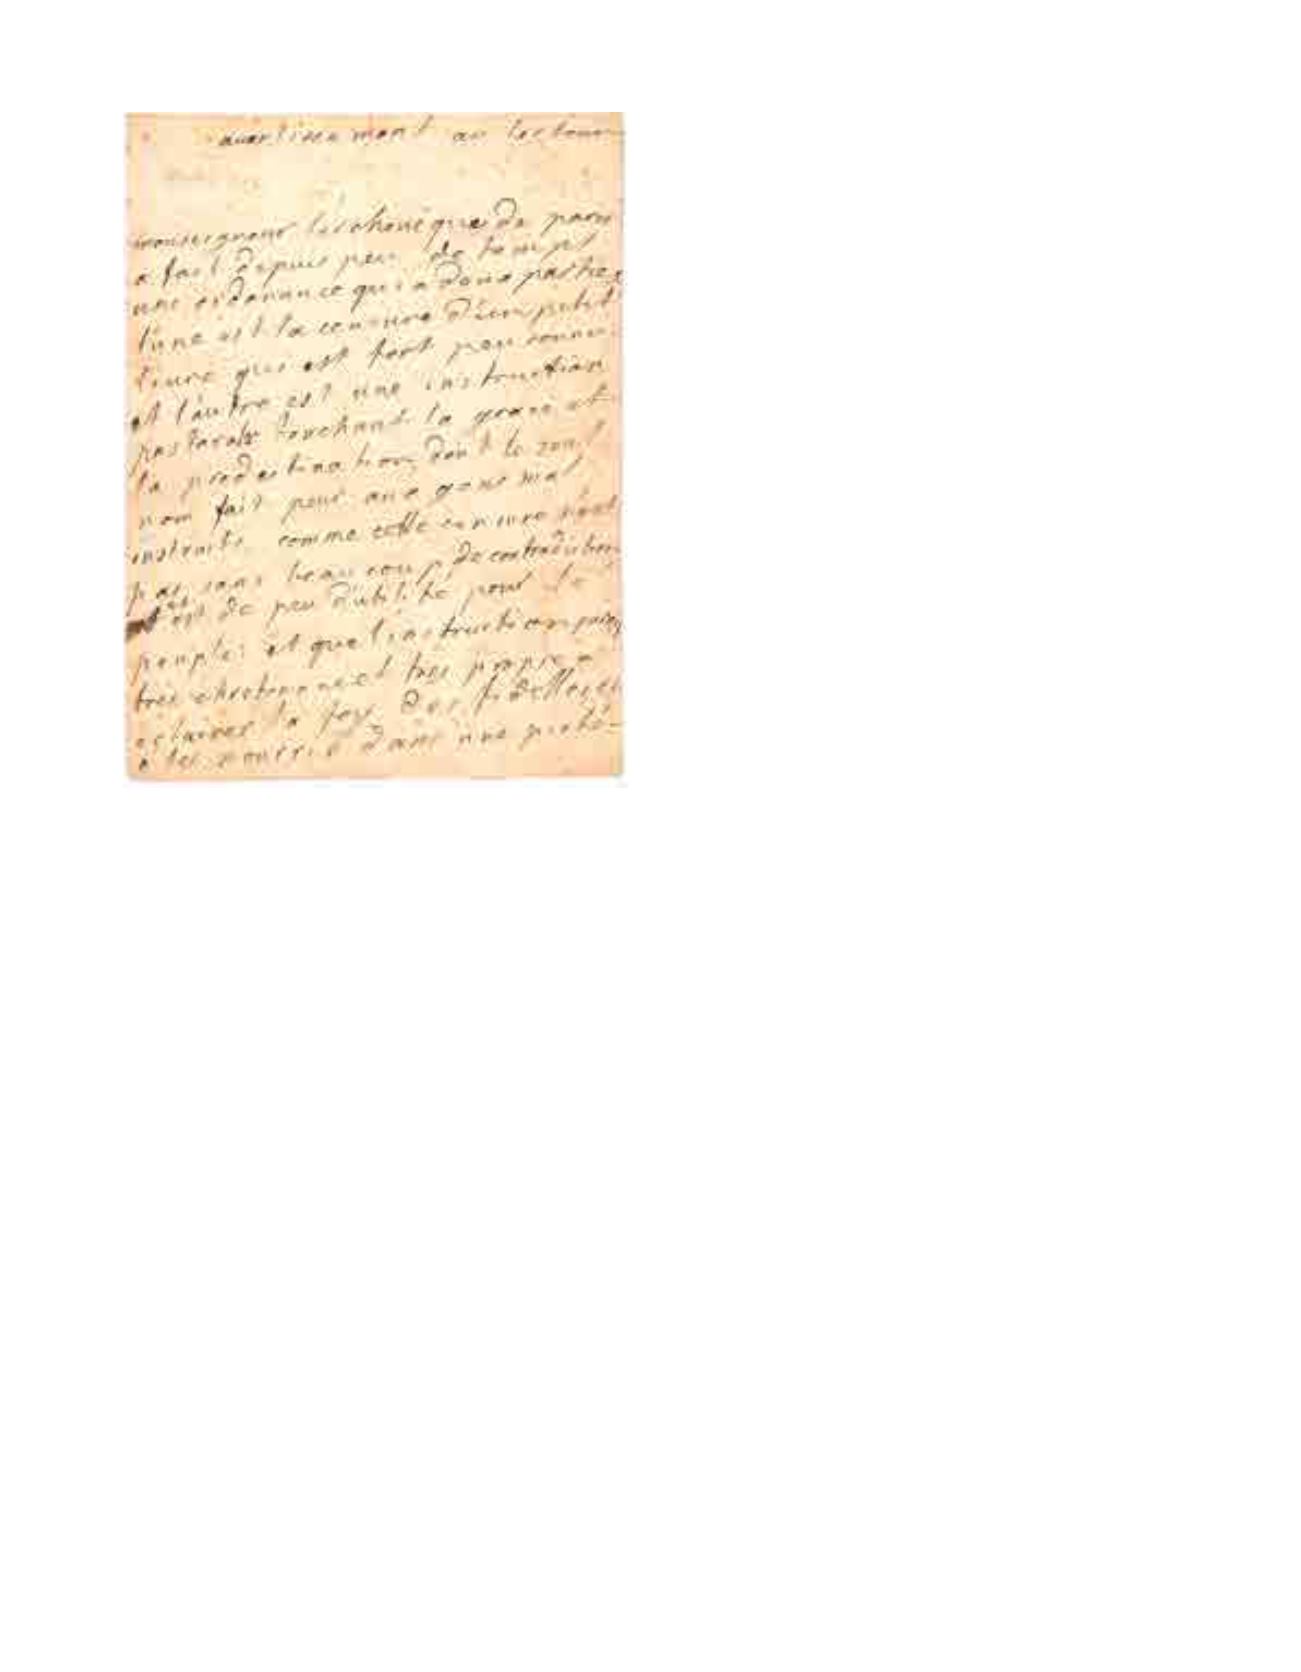 auertisement au lecteur
monseigneur l'archeuêque de paris
a fait depuis peu de temps
une ordonance qui a deux parties
l'une est la censure d'un petit
liure qui est fort peu connu
et l'autre est une instruction
pastorale touchant la grace et
la predestination dont le seul
nom fait peur aux gens mal
instruits comme cette censure n'est
pas sans beaucoup de contradiction
et est de peu d'utilité pour le
peuple et que l'instruction
tres chretienne et tres propre a
eclairer la foy des fidelles et
a les nourrir dans une pieté